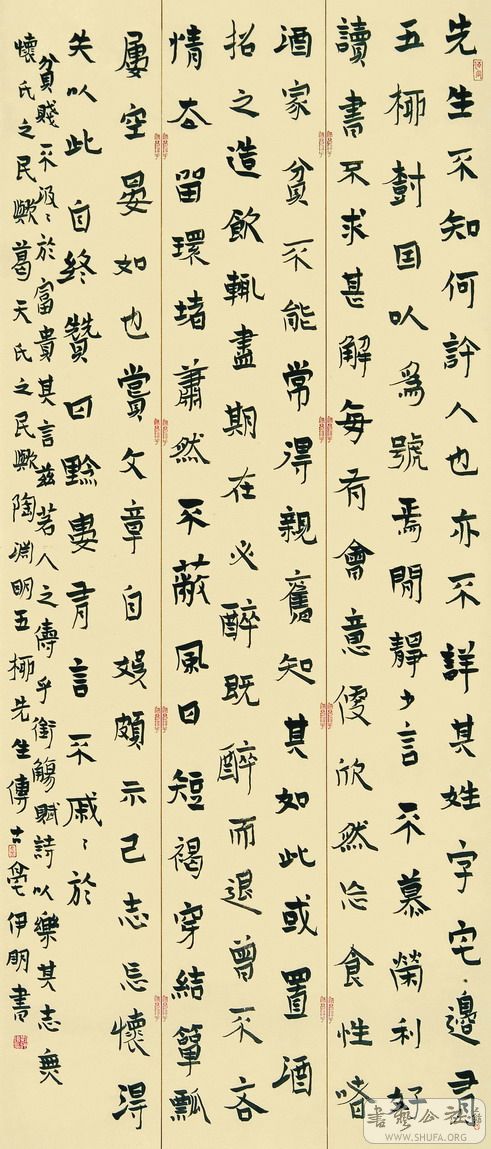 先生不知何許人也亦不詳其姓字宅、邊有
五柳樹因以為號焉閒靜少言不慕榮利好
讀書不求甚解每有會意便欣然忘食性嗜
酒家貧不能常得親舊知其如此或置酒
招之造飲輒盡期在必醉既醉而退曾不吝
情去留環堵蕭然不蔽風日短褐穿結簞瓢
屢空晏如也嘗文章自娛頗示己志忘懷得
失以此自終贊曰黔婁有言不戚、於
貧賤不汲、於富貴其言茲若人之儔乎銜觴賦詩以樂其志無
懷氏之民歟葛天氏之民歟陶淵明五柳先生傳 古亳伊明書
書藝公社
WWW.SHUFA.ORG